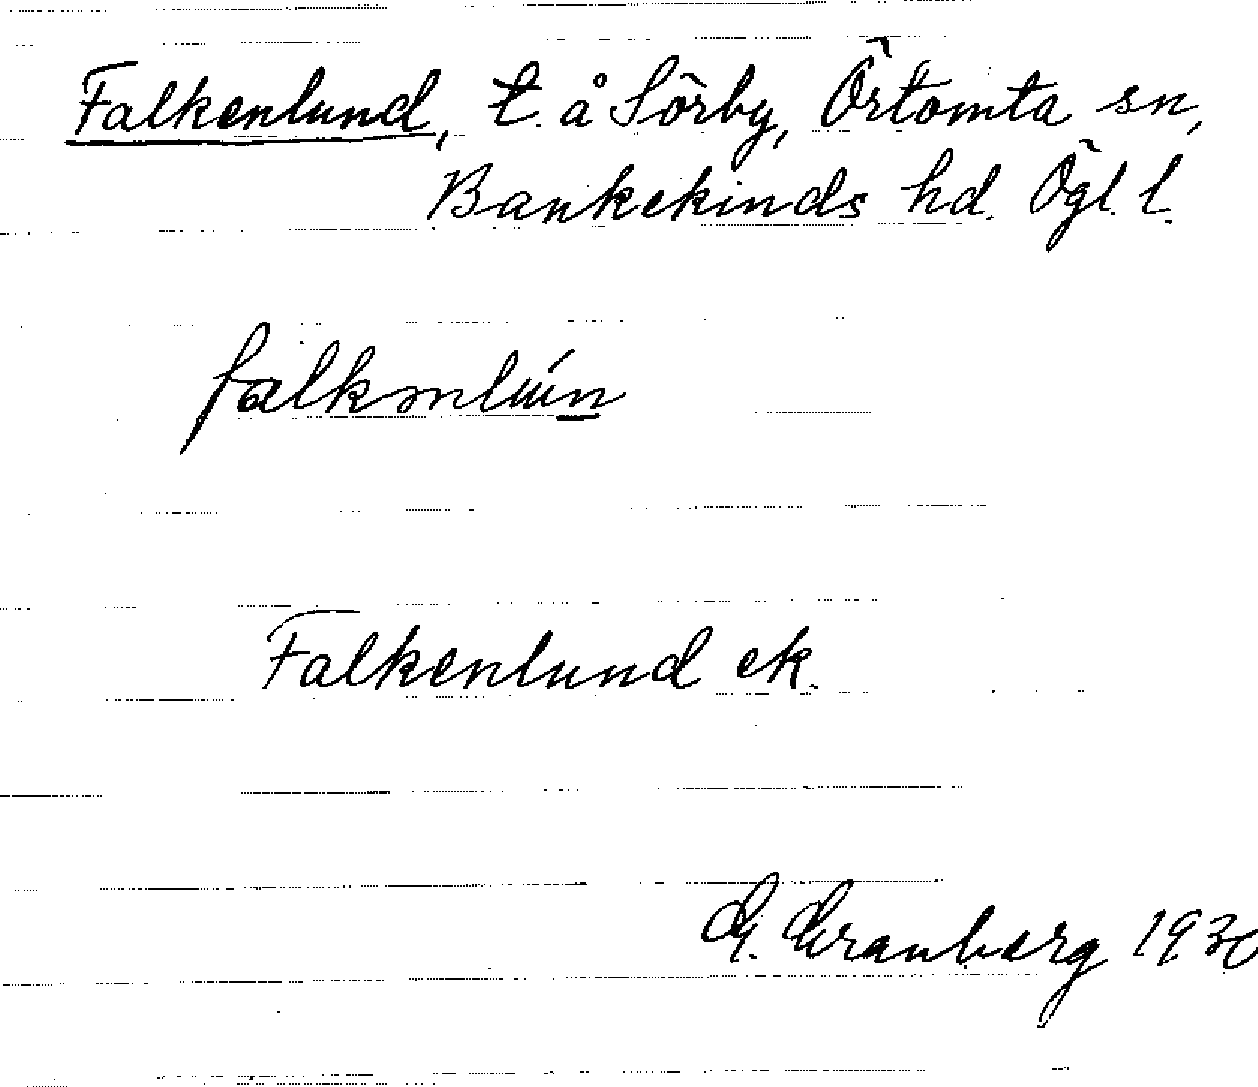 Falkenlund, t. å Sörby, Örtomta sn,
Bankekinds hd. Ögl. l.
falkənluń
Falkenlund ek.
G. Granberg 1930